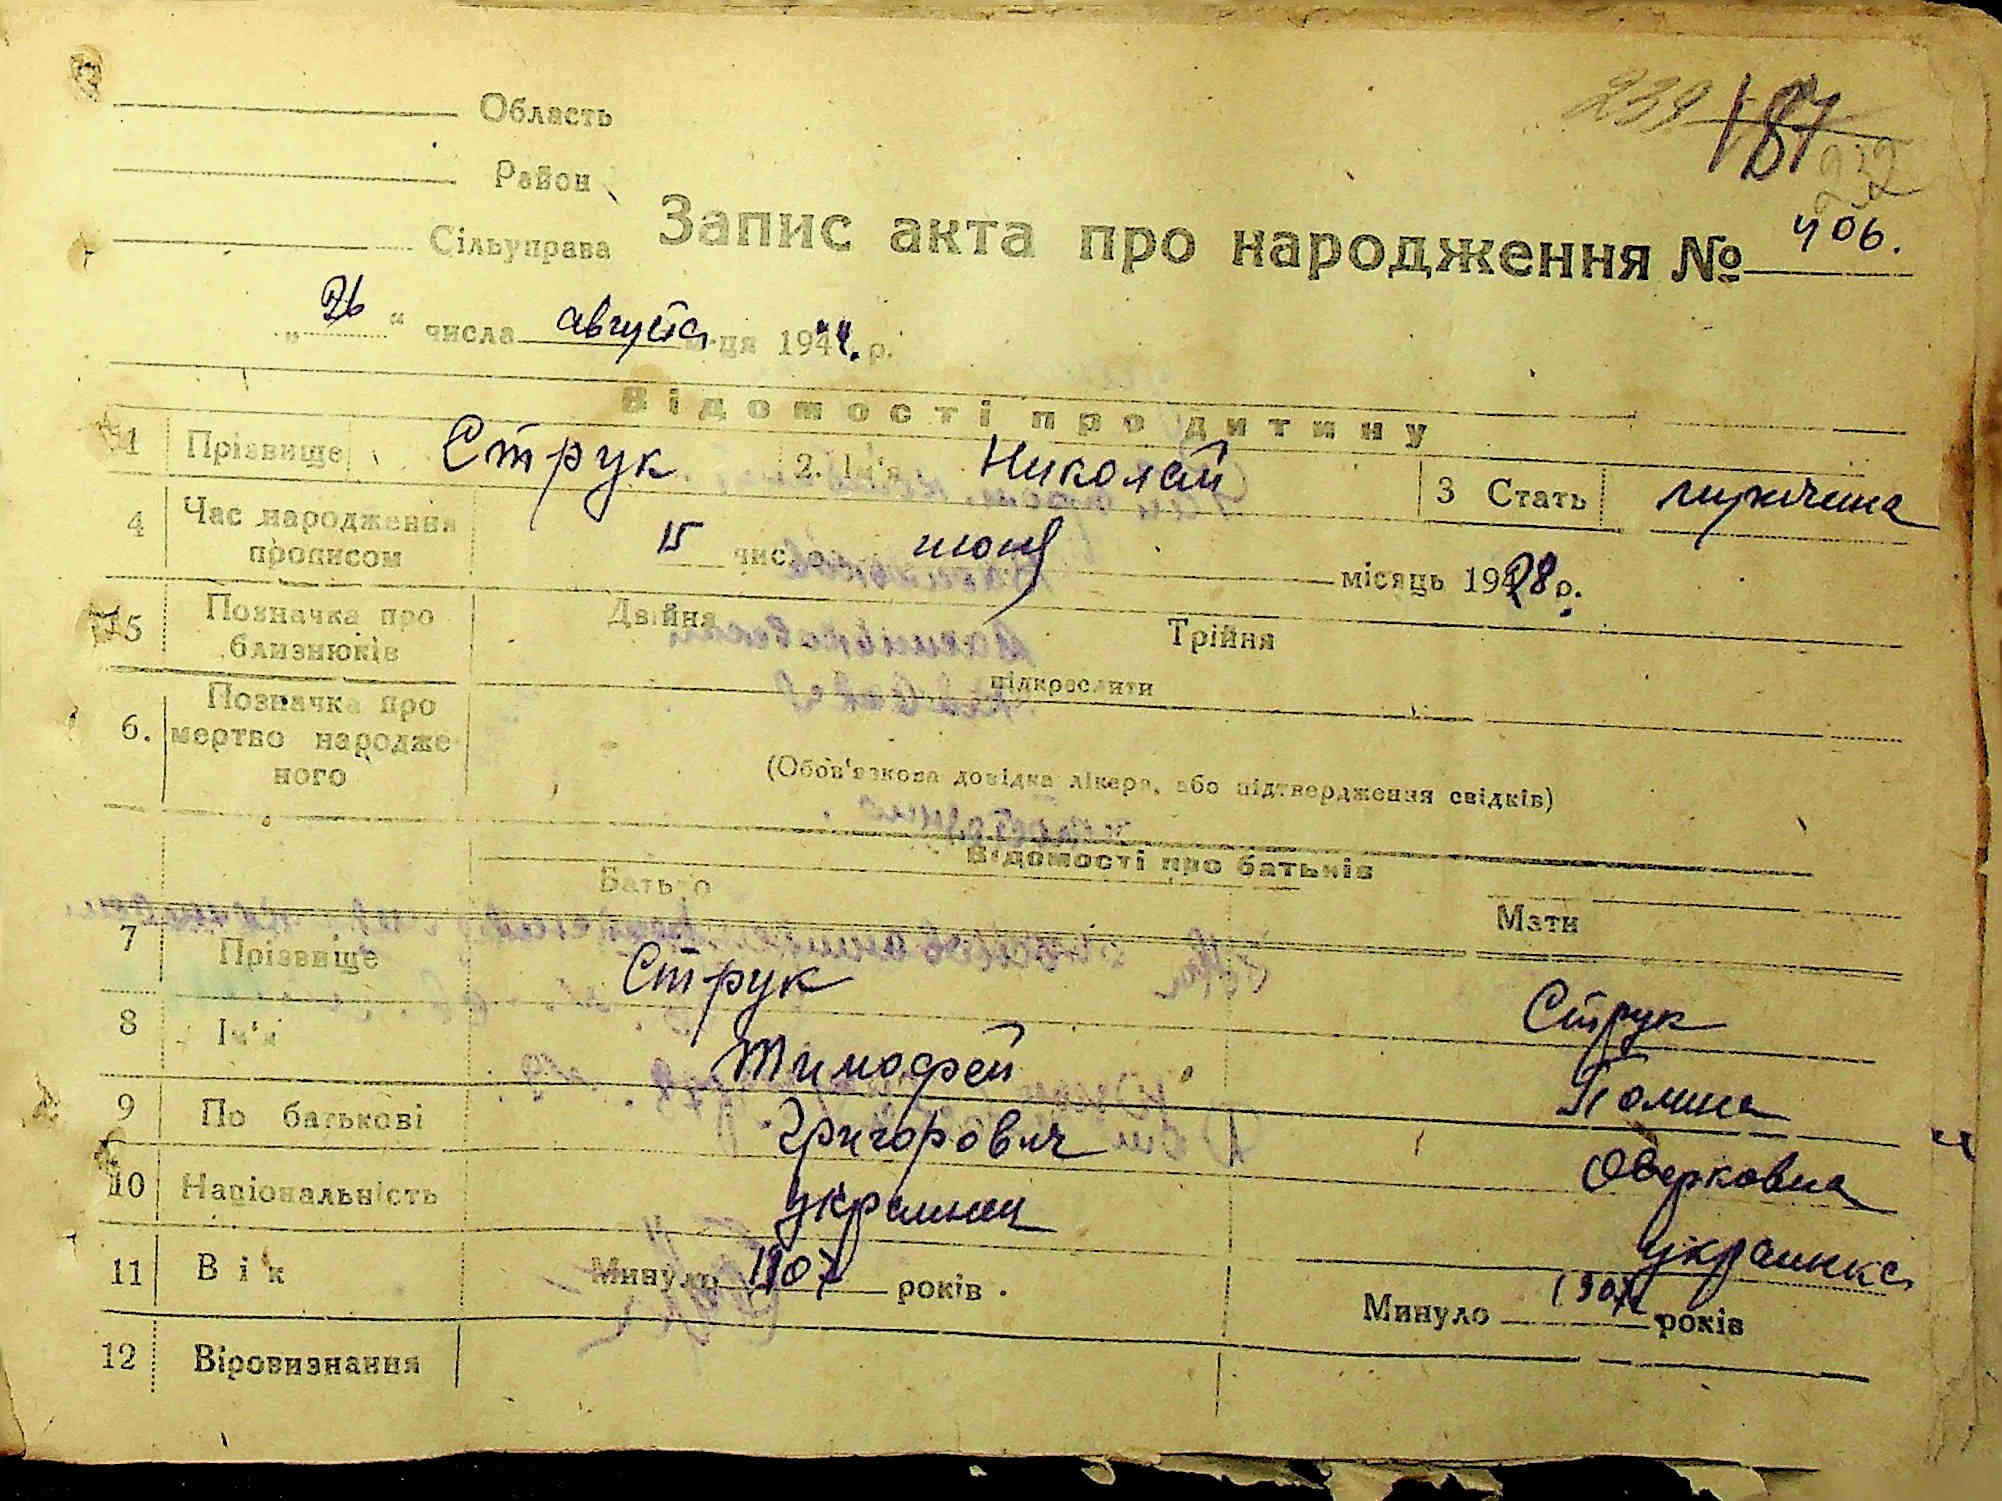 239 187
232
Область
Район
Сільуправа
Запис акта про народження № 406.
„26“ числа августа м-ця 1944. р.
Відомості про дитину
1 Прізвище Струк 2. Ім'я Николай 3 Стать мужчина
4 Час народження прописом 15 число июня місяць 1928 р.
5 Позначка про близнюків Двійня Трійня
підкреслити
6. Позначка про мертво народженого
(Обов'язкова довідка лікаря, або підтвердження свідків)
Відомості про батьків
Батько Мати
7 Прізвище Струк Струк
8 Ім'я Тимофей Полина
9 По батькові Григорович Оверковна
10 Національність украинец украинка
11 Вік Минуло 1907 років. Минуло 1907 років
12 Віровизнання